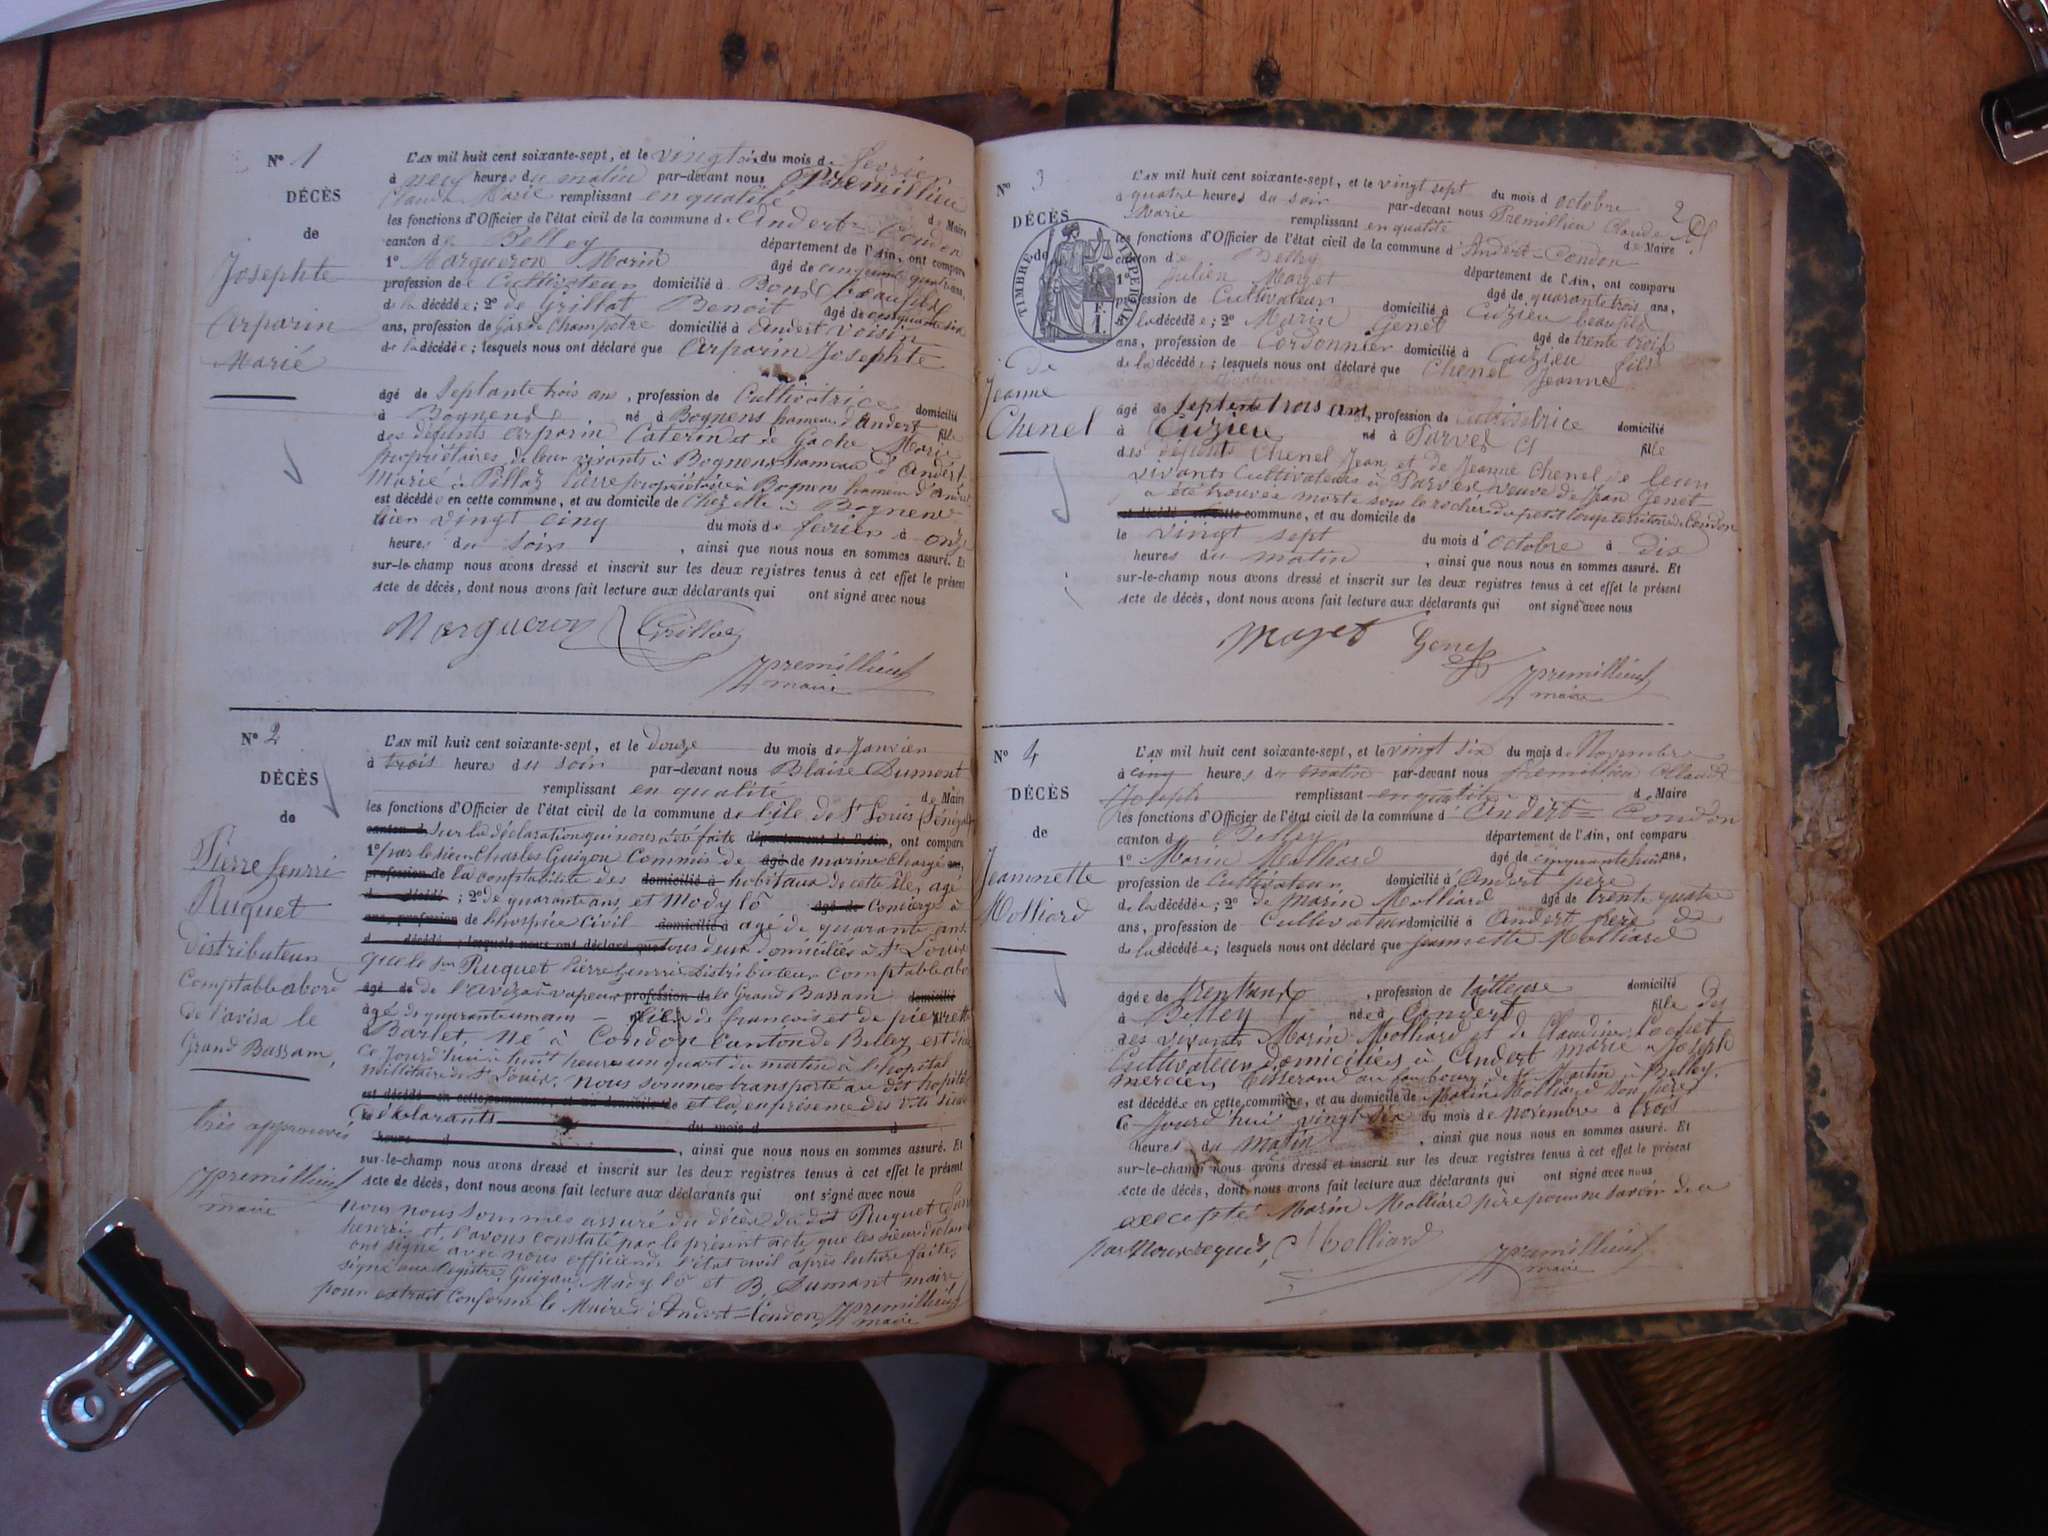 N° 1
DÉCÈS
de
Josephte
Arparin
Marié
L'AN mil huit cent soixante-sept, et le vingt six du mois de fevrier
à neuf heures du matin par-devant nous Premillieu
Claude Marie remplissant en qualité de Maire
les fonctions d'Officier de l'état civil de la commune d'Andert-Condon
canton de Belley département de l'Ain, ont comparu
1° Margueron Marin âgé de cinquante quatre ans,
profession de Cultivateur domicilié à Bons beaufils
de la décédée; 2° de Grillat Benoit âgé de cinquante six
ans, profession de Garde Champêtre domicilié à Andert voisin
de la décédée; lesquels nous ont déclaré que Arparin Josephte
âgé de Septante trois ans, profession de Cultivatrice domicilié
à Bognens né à Bognens hameau d'Andert fille
des défunts Arparin Caterin et de Gache Marie
propriétaires de leur vivants à Bognens hameau d'Andert
Marié à Pillaz Pierre propriétaire à Bognens hameau d'Andert
est décédée en cette commune, et au domicile de Chez elle à Bognens
hier vingt cinq du mois de fevrier à onze
heures du soir, ainsi que nous nous en sommes assuré. Et
sur-le-champ nous avons dressé et inscrit sur les deux registres tenus à cet effet le présent
acte de décès, dont nous avons fait lecture aux déclarants qui ont signé avec nous
Margueron Grillat
Premillieu
maire
N° 2
DÉCÈS
de
Pierre henrri
Ruquet
distributeur
Comptable abord
de l'aviso le
Grand Bassam,
très approuvés
Premillieu
maire
L'AN mil huit cent soixante-sept, et le douze du mois de Janvier
à trois heures du soir par-devant nous Blaise Dumont
remplissant en qualité de Maire
les fonctions d'Officier de l'état civil de la commune de l'île de St Louis (Sénégal)
canton d sur la déclaration qui nous a été faite département de l'Ain, ont comparu
1° par le sieur Charles Guigou Commis de âgé de marine chargé ans,
profession de la comptabilité des domicilié à hôpitaux de cette île, agé
d décédé; 2° de quarante ans, et Mody lô âgé de Concierge à
ans, profession de l'hospice Civil domicilié à agé de quarante ans
d décédé; lesquels nous ont déclaré que tous deux domiciliés à St Louis
que le sieur Ruquet Pierre henrri distributeur Comptable abord
âgé de de l'aviso à vapeur profession de le Grand Bassam domicilié
agé de quarante un ans – fils de françois et de pierrette
Barlet, né à Condon Canton de Belley est décédé
Ce jourd'hui à huit heures un quart du matin à l'hopital
militaire de St Louis. Nous sommes transporté au dit hopital
est décédé en cette commune, et au domicile de et là, en présence des dits sieurs
le déclarants du mois d à
heure d, ainsi que nous nous en sommes assuré. Et
sur-le-champ nous avons dressé et inscrit sur les deux registres tenus à cet effet le présent
acte de décès, dont nous avons fait lecture aux déclarants qui ont signé avec nous
nous nous sommes assuré du décès du dit Ruquet
henrri et l'avons constaté par le présent acte que les sieurs déclarants
ont signé avec nous officier de l'état civil après lecture faite,
signé au registre: Guigou, Mody lô et B. Dumont maire
pour extrait Conforme le Maire d'Andert-Condon Premillieu
maire
N° 3
DÉCÈS
de
TIMBRE IMPERIAL
1 F.
de
Jeanne
Chenel
2
L'AN mil huit cent soixante-sept, et le vingt sept du mois d octobre
à quatre heures du soir par-devant nous Premillieu Claude
Marie remplissant en qualité de Maire
les fonctions d'Officier de l'état civil de la commune d'Andert-Condon
canton de Belley département de l'Ain, ont comparu
1° Julien Mayet âgé de quarante trois ans,
profession de Cultivateur domicilié à Cuzieu beaufils
de la décédée; 2° Marin Genet âgé de trente trois
ans, profession de Cordonnier domicilié à Cuzieu fils
de la décédée; lesquels nous ont déclaré que Chenel Jeanne
âgé de Septente trois ans, profession de Cultivatrice domicilié
à Cuzieu né à Parves fille
des défunts Chenel Jean et de Jeanne Chenel de leur
vivants Cultivateurs à Parves veuve de Jean Genet
a été trouvée morte sous le rocher du petit loup territoire de Condon
est décédé en cette commune, et au domicile de
le vingt sept du mois d'octobre à dix
heures du matin, ainsi que nous nous en sommes assuré. Et
sur-le-champ nous avons dressé et inscrit sur les deux registres tenus à cet effet le présent
acte de décès, dont nous avons fait lecture aux déclarants qui ont signé avec nous
Mayet Genet
Premillieu
maire
N° 4
DÉCÈS
de
Jeannette
Molliard
L'AN mil huit cent soixante-sept, et le vingt six du mois de Novembre
à cinq heures du matin par-devant nous Premillieu Claude
Joseph remplissant en qualité d Maire
les fonctions d'Officier de l'état civil de la commune d'Andert-Condon
canton de Belley département de l'Ain, ont comparu
1° Marin Molliard âgé de cinquante huit ans,
profession de Cultivateur domicilié à Andert père
de la décédée; 2° de Marin Molliard âgé de trente quatre
ans, profession de Cultivateur domicilié à Andert frère de
de la décédée; lesquels nous ont déclaré que Jeannette Molliard
âgée de trente ans, profession de tailleuse domicilié
à Belley née à Andert fille des
des vivants Marin Molliard et de Claudine
Cultivateurs domiciliés à Andert marié à Joseph
mercier Tisserand au faubourg de St Martin à Belley.
est décédée en cette commune, et au domicile de Marin Molliard son père
le jourd'hui vingt six du mois de novembre à trois
heures du matin, ainsi que nous nous en sommes assuré. Et
sur-le-champ nous avons dressé et inscrit sur les deux registres tenus à cet effet le présent
acte de décès, dont nous avons fait lecture aux déclarants qui ont signé avec nous
excepté Marin Molliard père pour ne savoir de ce
par Nous requis, Molliard
Premillieu
maire